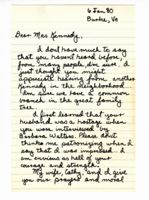 6 Jan 80
Burke, Va
Dear Mrs Kennedy,
I don't have much to say
that you haven't heard before
from many people, I'm sure. I
just thought you might
appreciate hearing from another
Kennedy in the neighborhood.
I'm sure we have a common
branch in the great family
tree.
I first learned that your
husband was a hostage when
you were interviewed by
Barbara Walters. Please don't
think me patronizing when I
say that I was impressed. I
am envious of half of your
courage and strength!
My wife, Cathy, and I give
you our prayers and moral